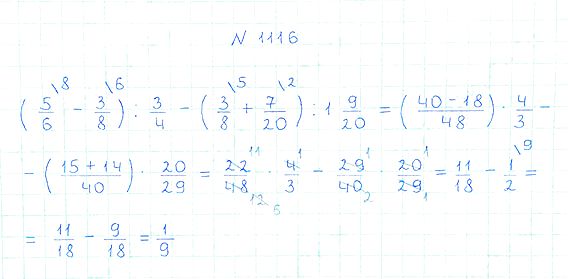 N 1116
(5/6 \8 - 3/8 \6) : 3/4 - (3/8 \5 + 7/20 \2) : 1 9/20 = ((40-18)/48) · 4/3 -
- ((15+14)/40) · 20/29 = 22/48 11 12 6 · 4/3 1 - 29/40 1 2 · 20/29 1 1 = 11/18 - 1/2 \9 =
= 11/18 - 9/18 = 1/9